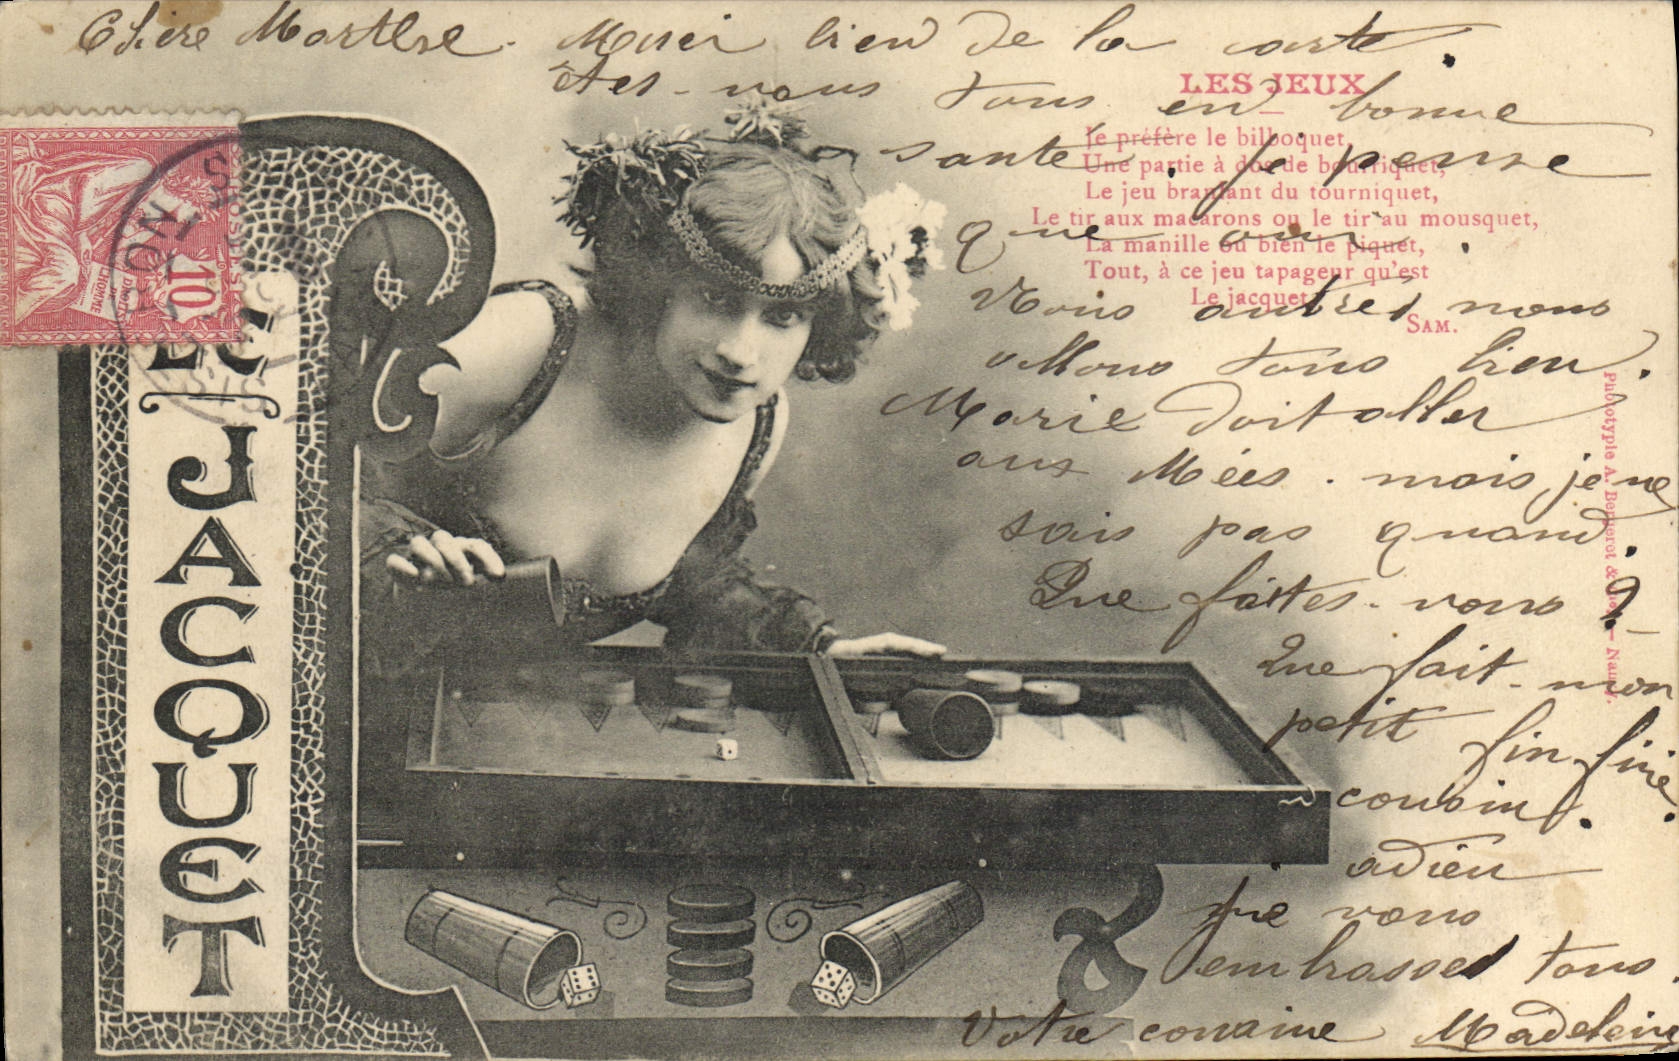 Chère Marthe. Merci bien de la carte.
êtes-vous tous en bonne
santé. Je pense
que oui.
Nous autres nous
allons tous bien.
Marie doit aller
aux Mées. mais je ne
sais pas quand.
Que faites-vous ?
Que fait-mon
petit fin fin
cousin.
adieu
je vous
embrasse tous.
Votre cousine Madeleine
LES JEUX
Je préfère le bilboquet,
Une partie à dos de bourriquet,
Le jeu branlant du tourniquet,
Le tir aux macarons ou le tir au mousquet,
La manille ou bien le piquet,
Tout, à ce jeu tapageur qu'est
Le jacquet.
SAM.
LE JACQUET
10
Phototypie A. Bergeret & Cie — Nancy